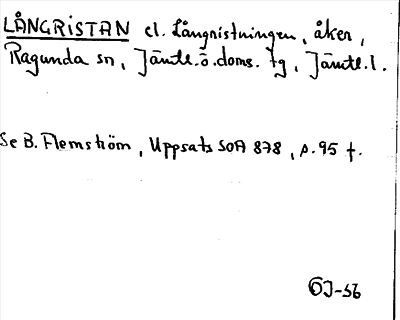 LÅNGRISTAN el. Långristningen, åker,
Ragunda sn, Jämtl. ö. doms. tg, Jämtl. l.
Se B. Flemström, Uppsats SOA 878, s. 95 f.
OJ-56